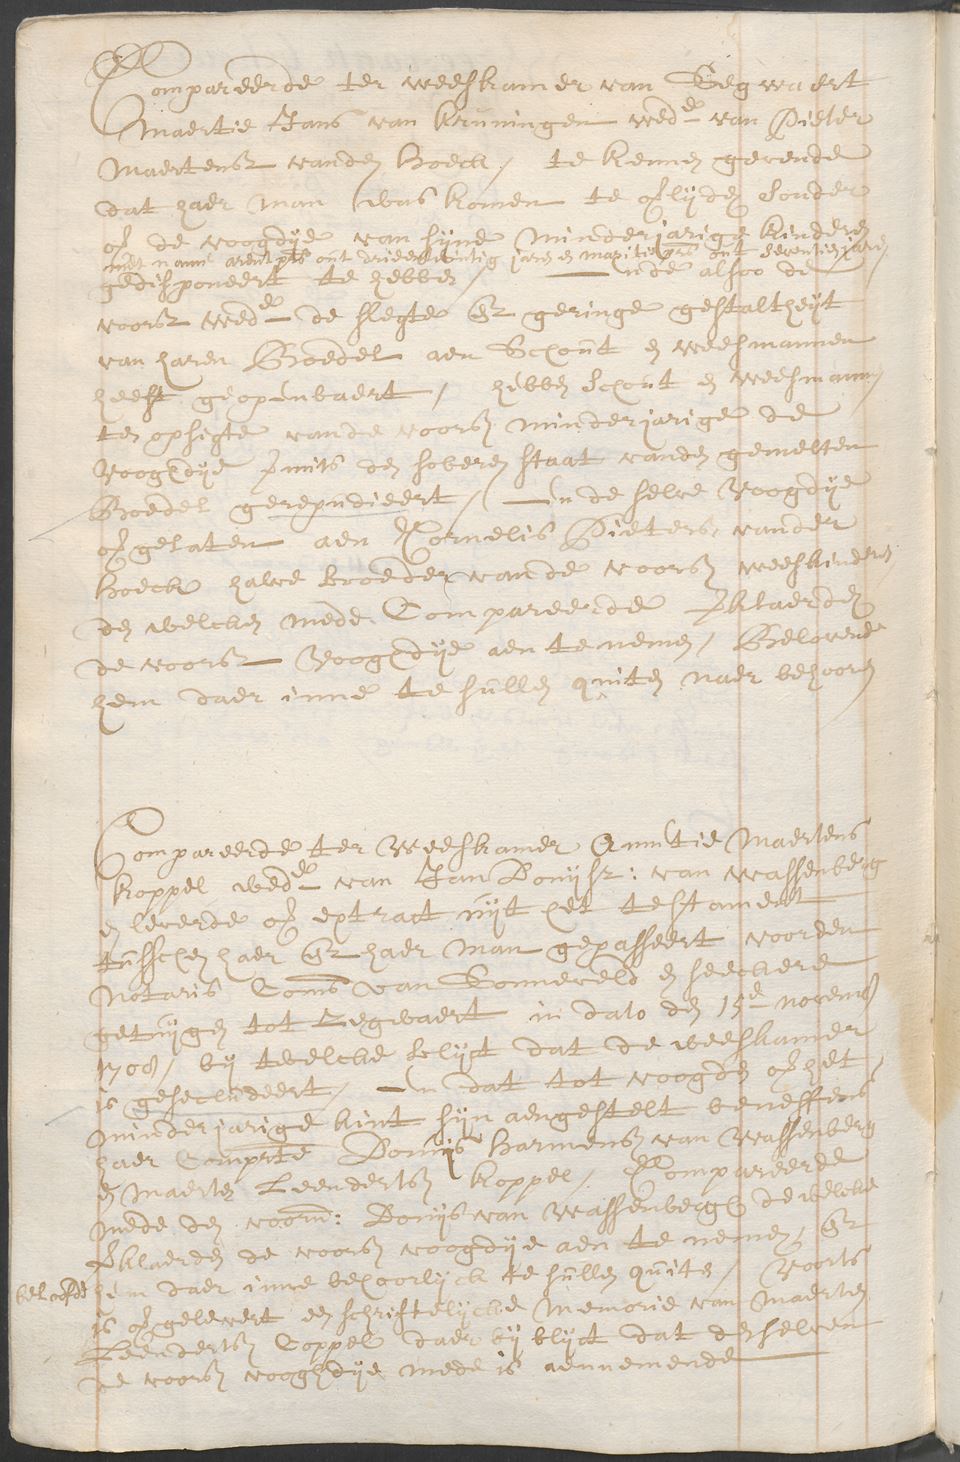 Compareerde ter weeskamer van Segwaert
Maertie Jans van Kruningen wedᵉ van Pieter
Maertensz vanden Hoeck, te kennen gevende
dat haer man was komen te oflijden sonder
op de voogdije van sijne minderjarige kinderen
met name arent pts out drieentwintig jaren en maritie pts out seventien jaren,
gedisponeert te hebben, ende alsoo de
voorsz wedᵉ de slegte ende geringe gestaltheijt
van haren Boedel aen Schout en weesmannen
heeft geopenbaert, hebben Schout en weesmann,
ten opsigte vande voorsz minderjarige de
voogdije vermits den soberen staat vanden gemelten
Boedel gerepudieert, en de selve voogdije
opgelaten aen Cornelis Pieters vander
Hoeck halve broeder vande voorsz weeskinderen
den welcken mede Compareerde verklaerden
de voorsz voogdije aen te nemen, Belovende
hem daer inne te sullen quiten naer behooren
Compareerde ter Weeskamer Annitie Maertens
Koppel wedᵉ van Jan Donijsz: van Wassenberg
en leverde op extract uijt het testament
tusschen haer ende haer man gepasseert voorden
Notaris Corns van Sonneveld en seeckere
getuijgen tot Zegwaert in dato den 15ᵉ novemb
1708, bij twelcke blijct dat de weeskamer
is gesecludeert, en dat tot voogden op het
minderjarige kint sijn aengestelt beneffens
haer Comprte Donijs Harmensz van Wassenberg
en Maerten Leendertsz Koppel, Compareerde
mede den voorn: Donijs van Wassenbergh de welcke
verklaerden de voorsz voogdije aen te nemen, ende
beloofde hem daer inne behoorlijck te sullen quiten, Voorts
is opgelevert een schriftelijcke Memorie van Maerten
Leendertsz Coppel daer bij blijct dat den selven
de voorsz vooghdije mede is aennemende